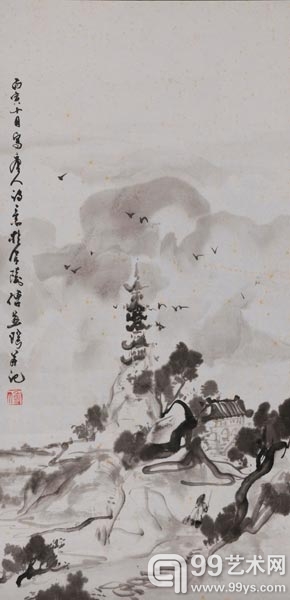 丙寅十月写唐人诗意于金陵傅益瑶并记
99艺术网
www.99ys.com